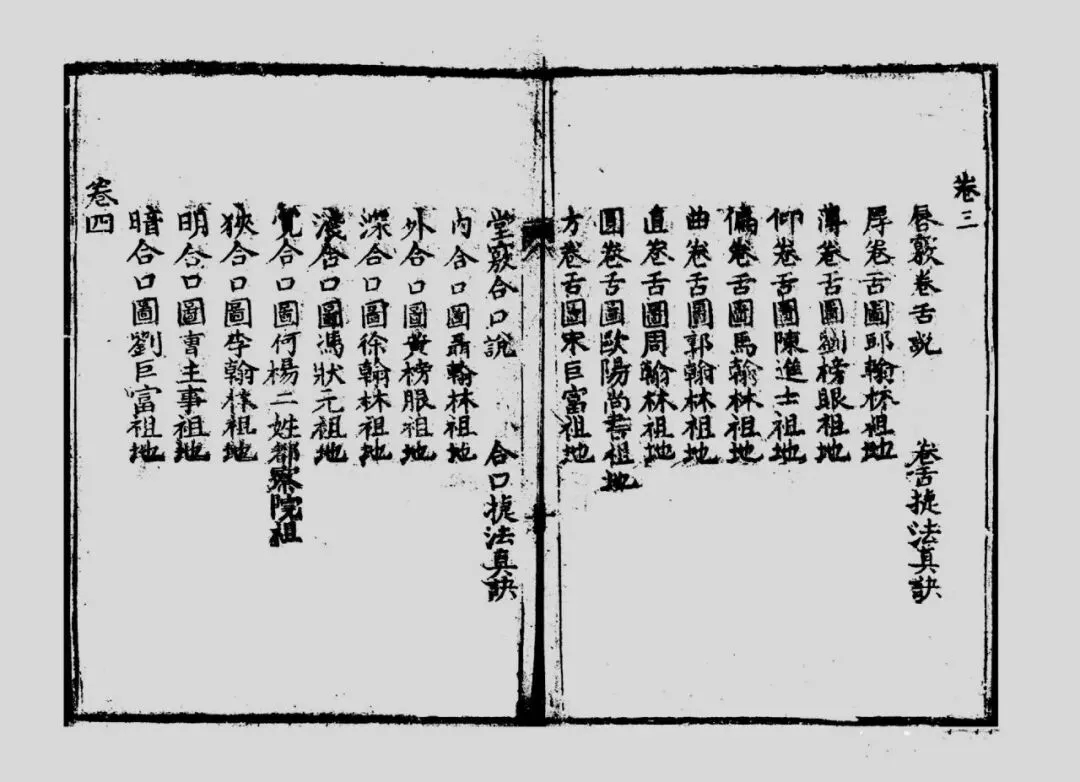 卷三
唇毬卷舌説 卷舌捷法真訣
厚卷舌圖邱翰林祖地
薄卷舌圖劉榜眼祖地
仰卷舌圖陳進士祖地
偏卷舌圖馬翰林祖地
曲卷舌圖郭翰林祖地
直卷舌圖周翰林祖地
圓卷舌圖歐陽尚書祖地
方卷舌圖宋巨富祖地
堂竅合口說 合口捷法真訣
內合口圖聶翰林祖地
外合口圖黄榜眼祖地
深合口圖徐翰林祖地
淺合口圖馮狀元祖地
寬合口圖何楊二姓都察院祖
狹合口圖李翰林祖地
明合口圖曹主事祖地
暗合口圖劉巨富祖地
卷四